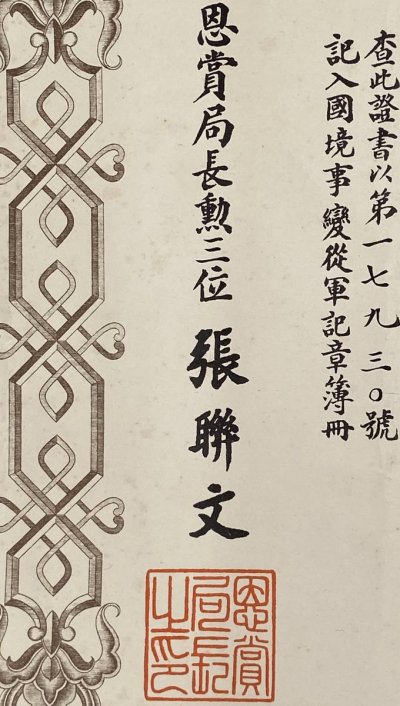 查此證書以第一七九三〇號
記入國境事變從軍記章簿冊
恩賞局長勲三位 張聯文
恩賞
局長
之印